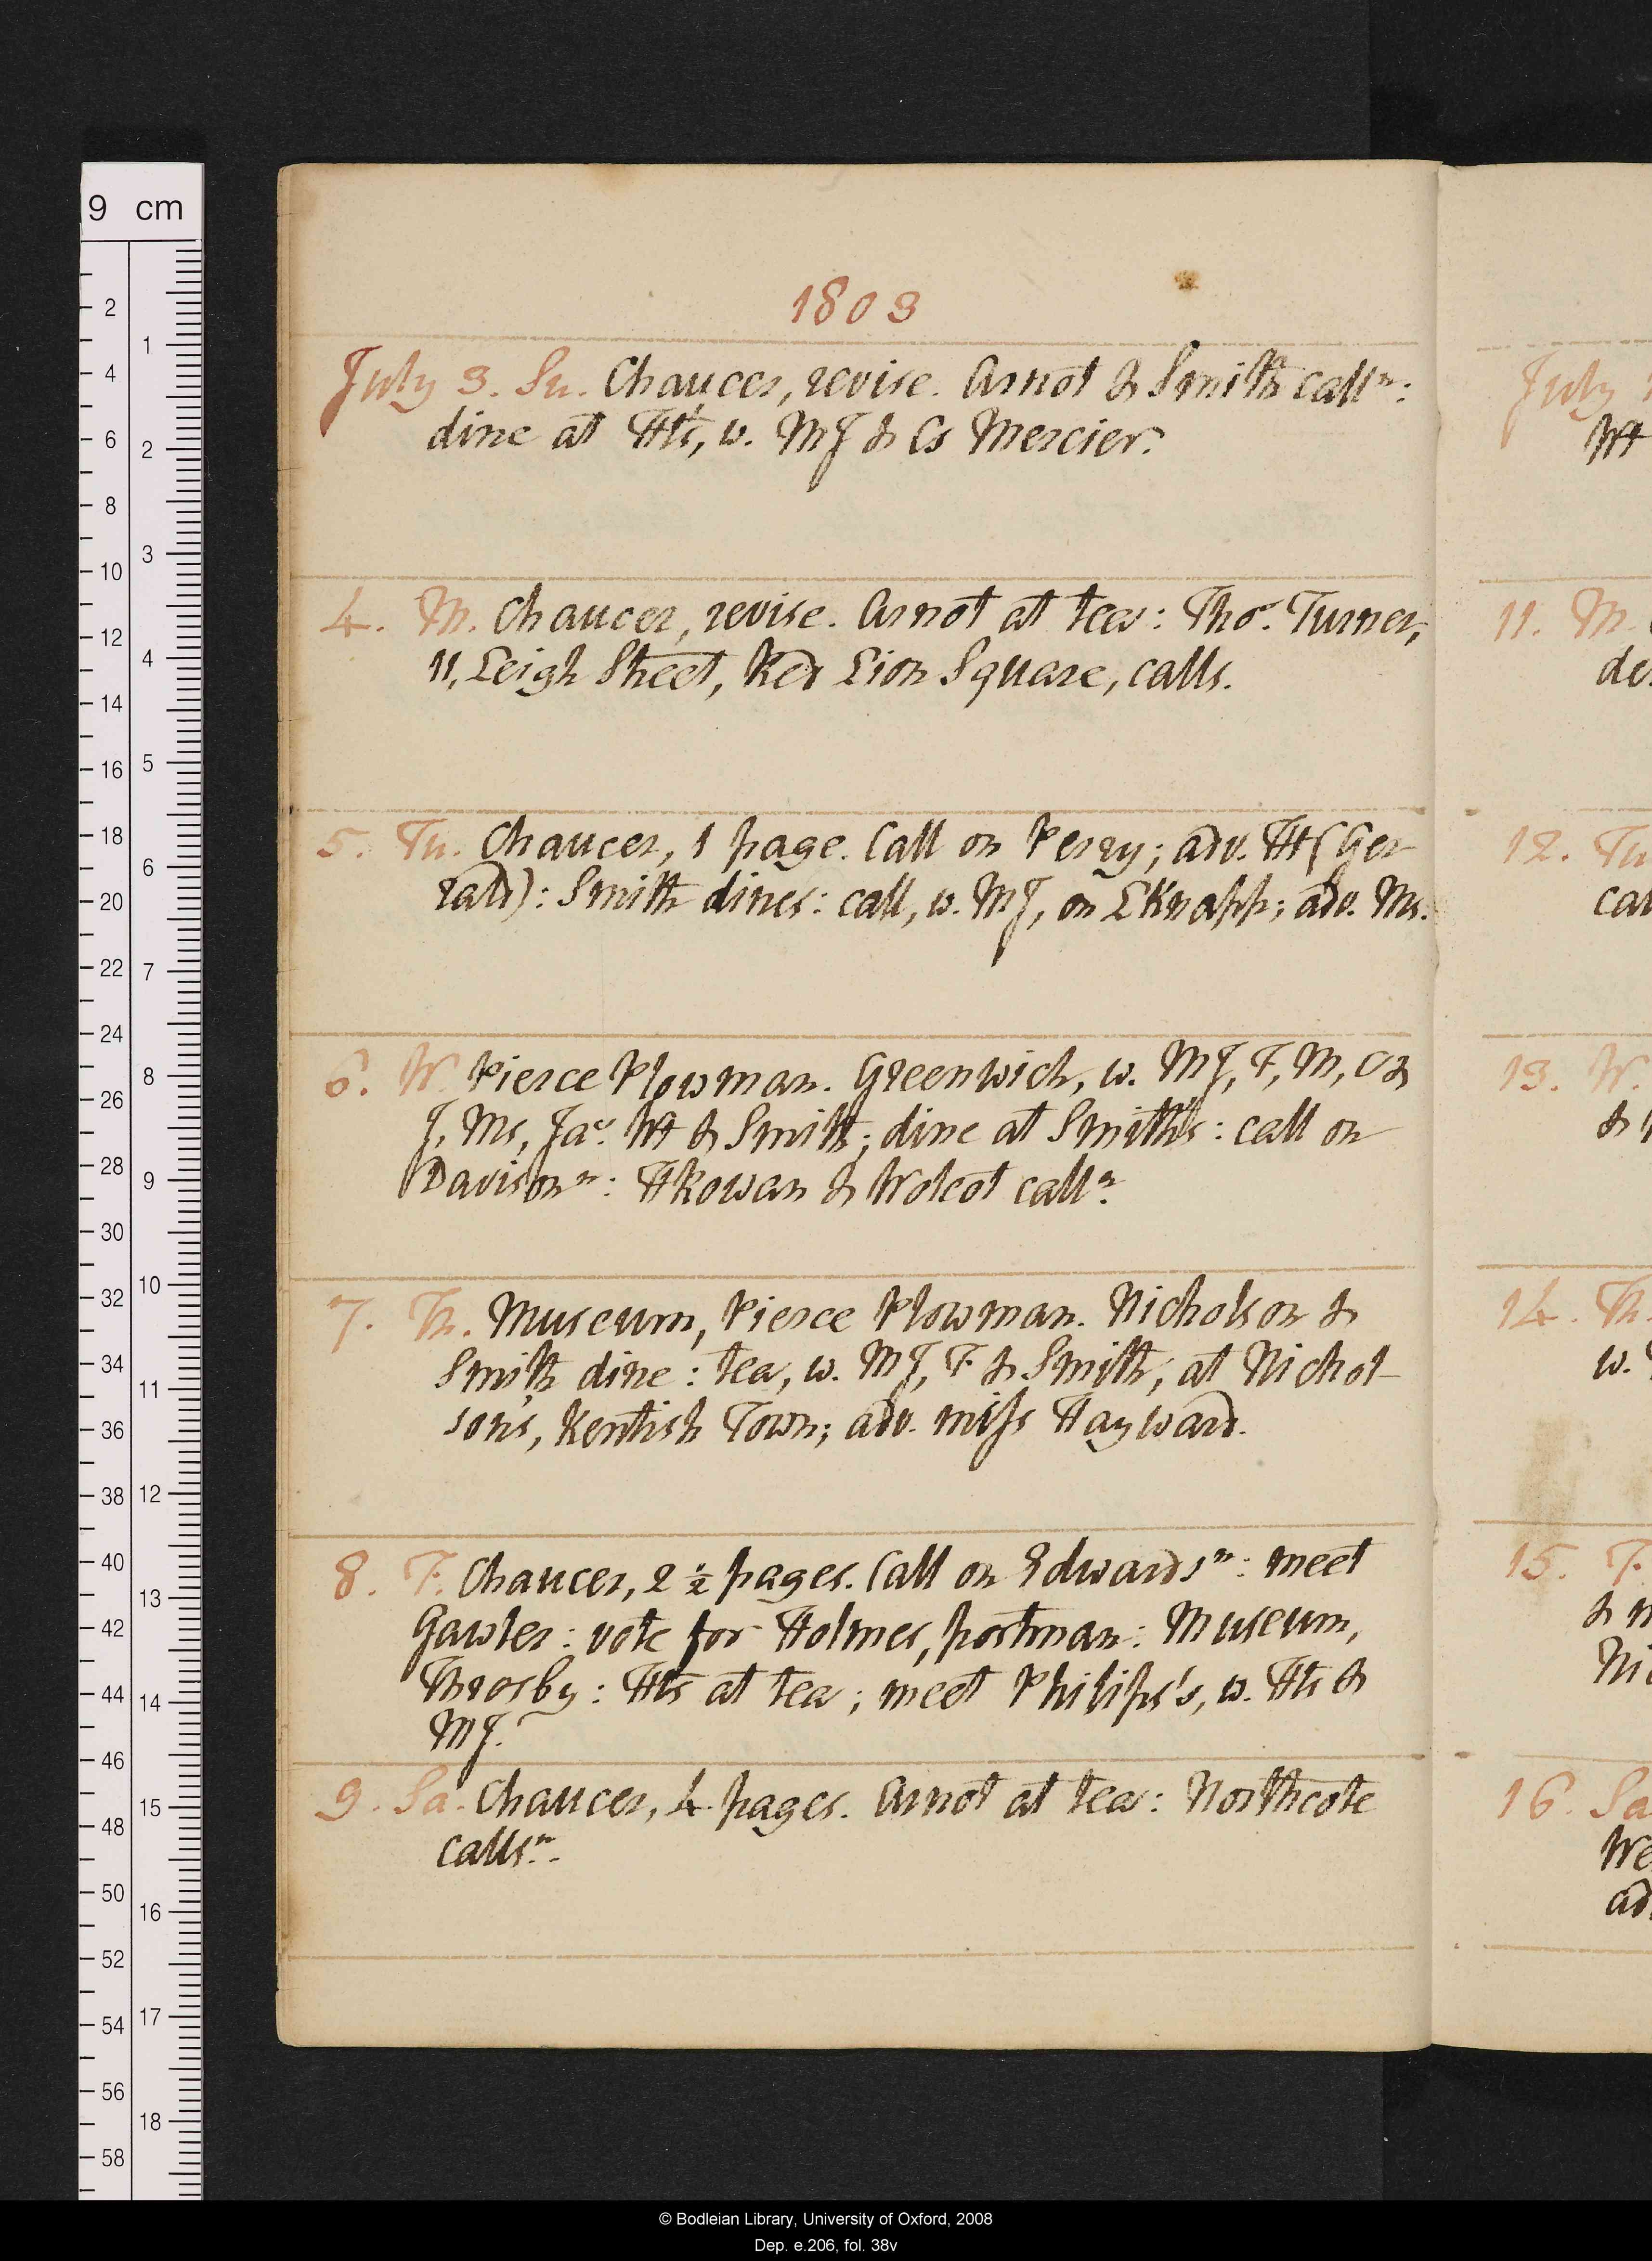 1803
July 3. Su. Chaucer, revise. Arnot & Smith callⁿ:
dine at Hts, w. MJ & Cs Mercier.
4. M. Chaucer, revise. Arnot at tea: Thoˢ. Turner,
11, Leigh Street, Red Lion Square, calls.
5. Tu. Chaucer, 1 page. Call on Perry; adv. Ht (Ger
rard): Smith dines: call, w. MJ, on LKnapp; adv. Ms.
6. W. Pierce Plowman. Greenwich, w. MJ, F, M, C &
J, Ms, Jaˢ. Wt & Smith; dine at Smith's: call on
Davisonⁿ: HRowan & Wolcot callⁿ.
7. Th. Museum, Pierce Plowman. Nicholson &
Smith dine: tea, w. MJ, F. & Smith, at Nichol-
son's, Kentish Town; adv. miss Hayward.
8. F. Chaucer, 2 ½ pages. Call on Edwardsⁿ: meet
Gawler: vote for Holmes, postman: Museum,
Throsby: Hts at tea; meet Philips's, w. Hts &
MJ.
9. Sa. Chaucer, 4 pages. Arnot at tea: Northcote
callsⁿ.
July
Wt
11. M.
de
12. Tu
cal
13. W.
&
14. Th.
w.
15. F.
&
Nic
16. Sa
We
ad
9 cm
2
4
6
8
10
12
14
16
18
20
22
24
26
28
30
32
34
36
38
40
42
44
46
48
50
52
54
56
58
1
2
3
4
5
6
7
8
9
10
11
12
13
14
15
16
17
18
© Bodleian Library, University of Oxford, 2008
Dep. e.206, fol. 38v